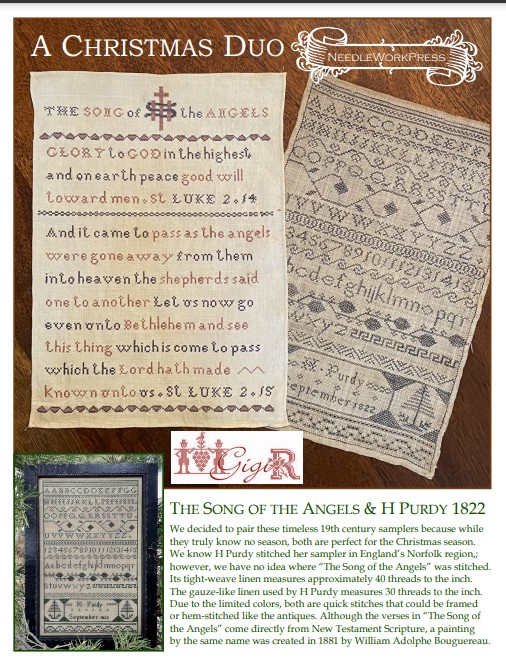 A CHRISTMAS DUO
NEEDLEWORKPRESS
THE SONG of IHS the ANGELS
GLORY to GOD in the highest
and on earth peace good will
toward men. St LUKE 2.14
And it came to pass as the angels
were gone away from them
into heaven the shepherds said
one to another Let us now go
even unto Bethlehem and see
this thing which is come to pass
which the Lord hath made
known unto us. St LUKE 2.15
H. Purdy
September 1822
GigiR
H Purdy
September 1822
THE SONG OF THE ANGELS & H PURDY 1822
We decided to pair these timeless 19th century samplers because while
they truly know no season, both are perfect for the Christmas season.
We know H Purdy stitched her sampler in England's Norfolk region,;
however, we have no idea where "The Song of the Angels" was stitched.
Its tight-weave linen measures approximately 40 threads to the inch.
The gauze-like linen used by H Purdy measures 30 threads to the inch.
Due to the limited colors, both are quick stitches that could be framed
or hem-stitched like the antiques. Although the verses in "The Song of
the Angels" come directly from New Testament Scripture, a painting
by the same name was created in 1881 by William Adolphe Bouguereau.